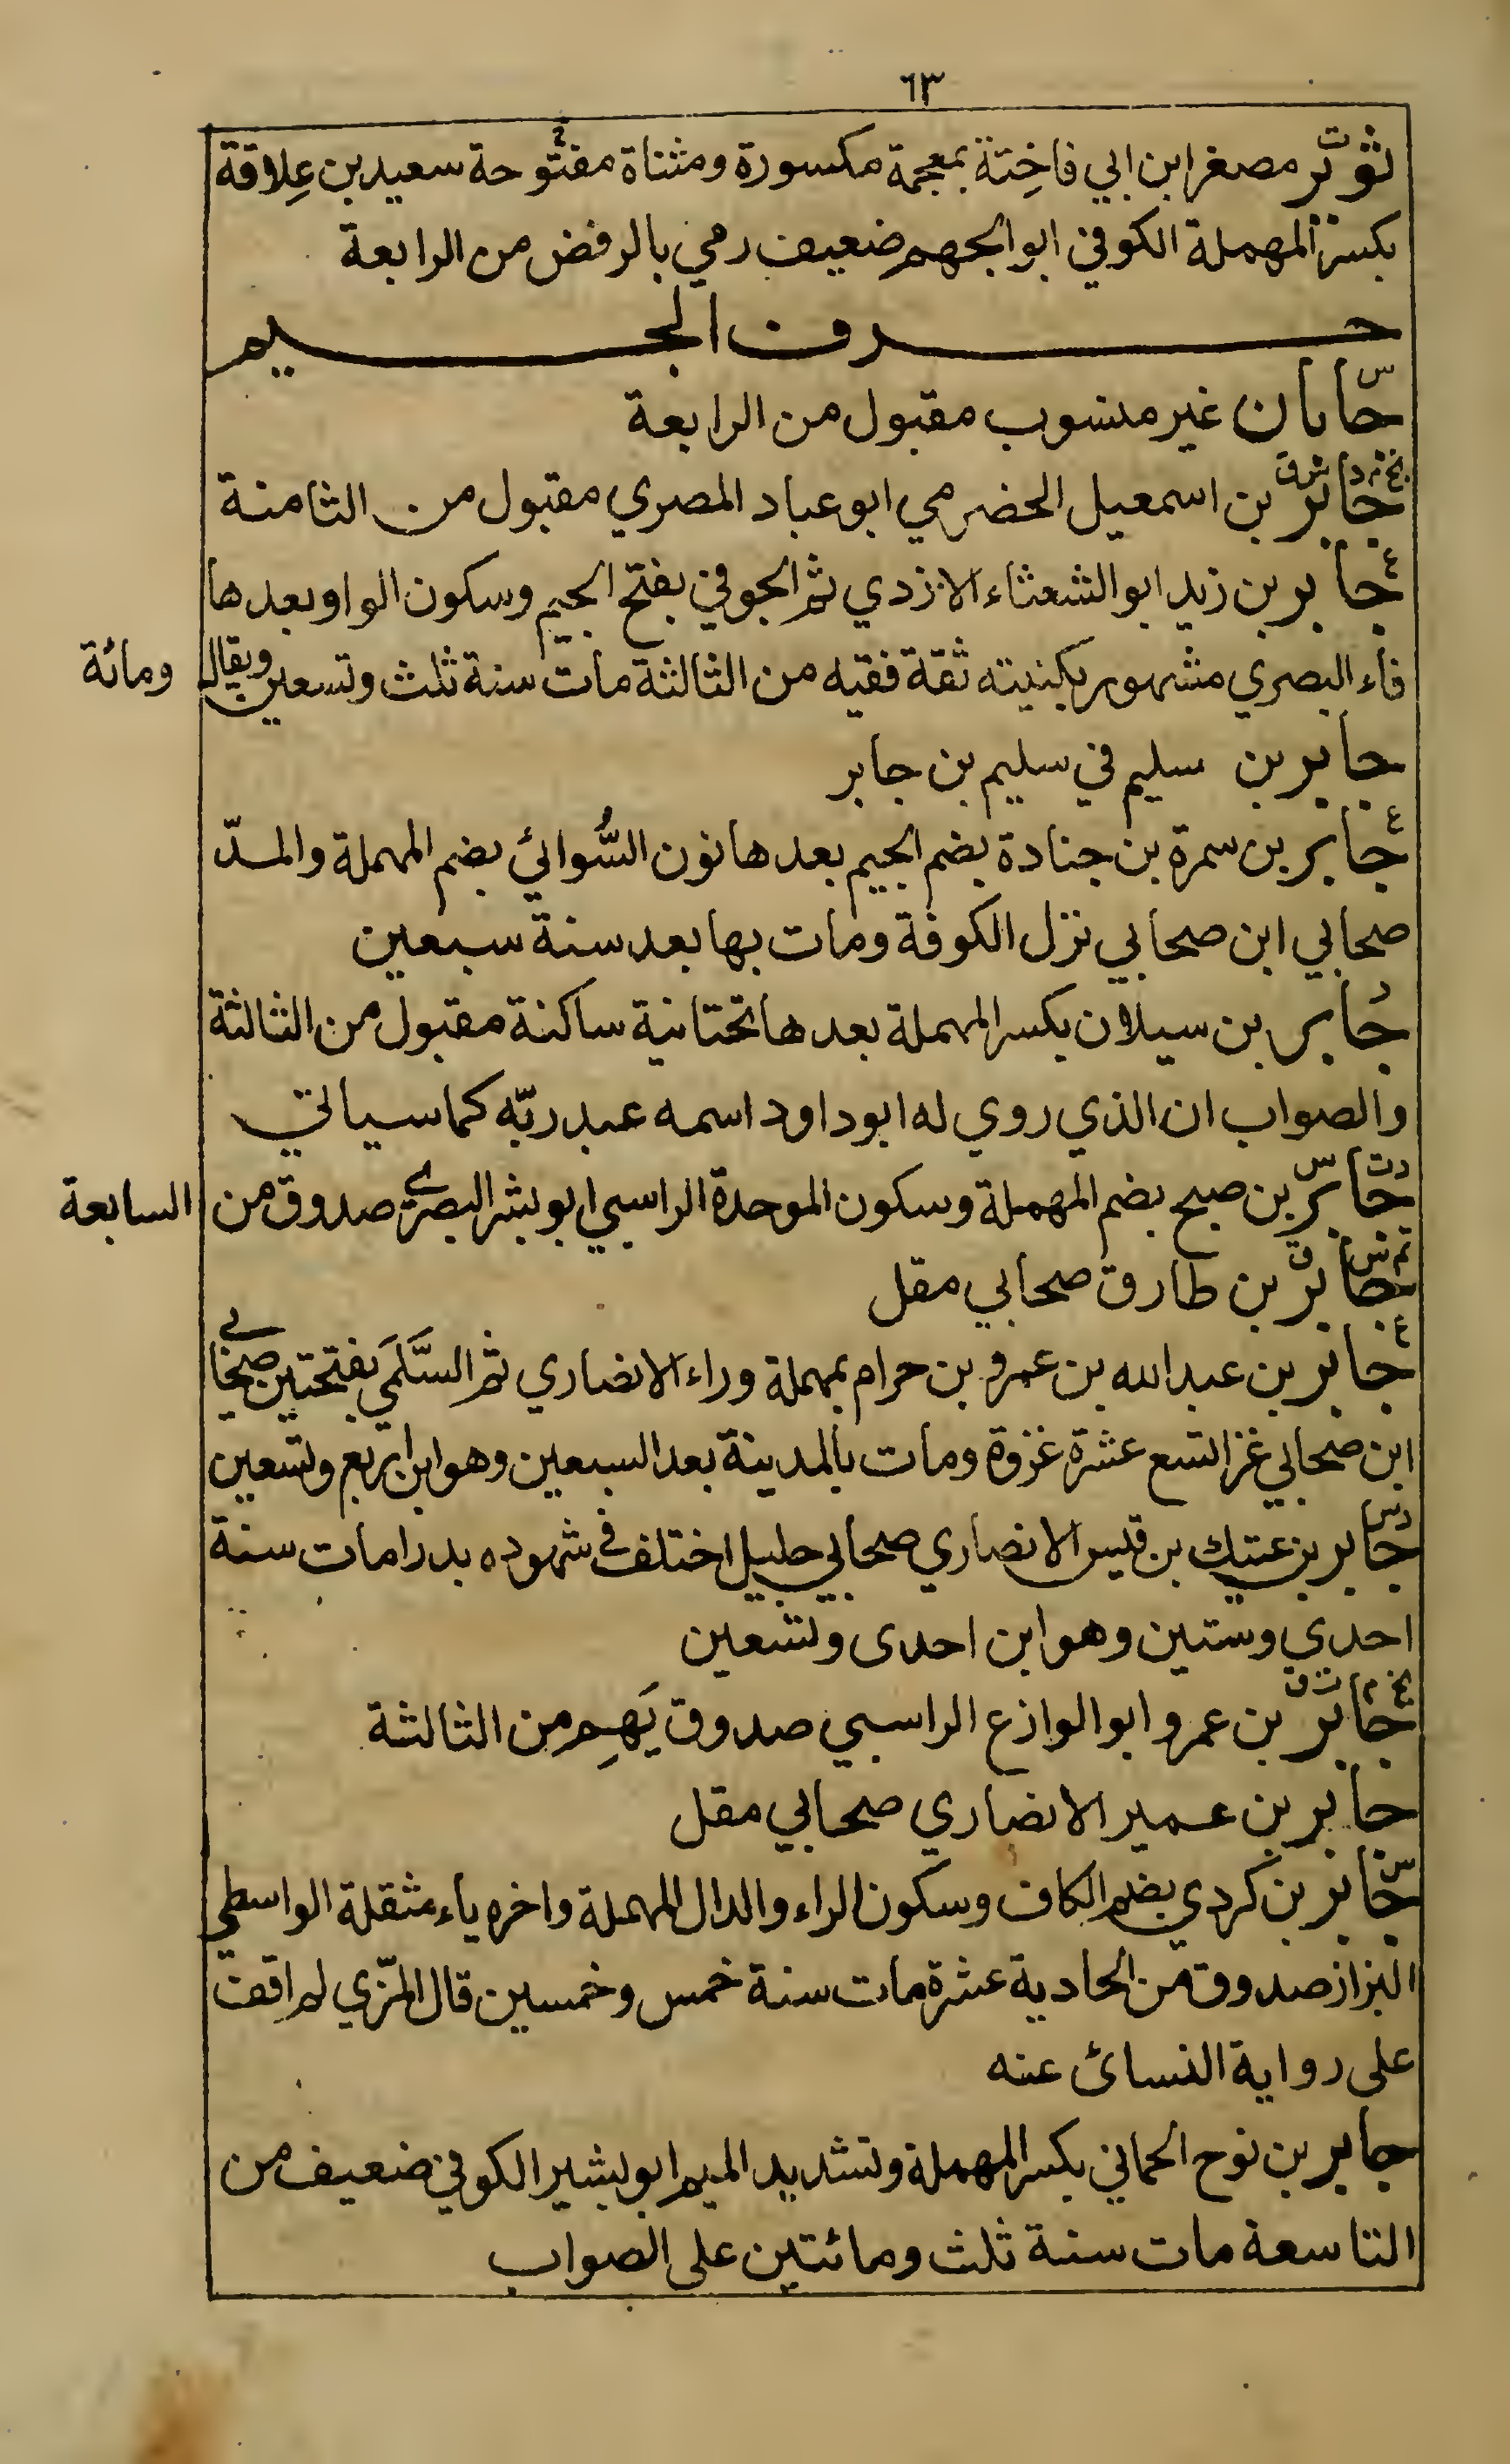 ٦٣
ثوير مصغر ابن ابي فاخِتة بمعجمة مكسورة ومثناة مفتوحة سعيد بن عِلاقة
بكسر المهملة الكوفي ابو الجهم ضعيف رمي بالرفض من الرابعة
حرف الجيم
س
جابان غير منسوب مقبول من الرابعة
جابر بن اسمعيل الحضرمي ابو عباد المصري مقبول من الثامنة
ع
جابر بن زيد ابو الشعثاء الازدي ثم الجوفي بفتح الجيم وسكون الواو بعدها
فاء البصري مشهور بكنيته ثقة فقيه من الثالثة مات سنة ثلث وتسعين ويقال ومائة
جابر بن سليم في سليم بن جابر
ع
جابر بن سمرة بن جنادة بضم الجيم بعدها نون السُّوائي بضم المهملة والمدّ
صحابي ابن صحابي نزل الكوفة ومات بها بعد سنة سبعين
د
جابر بن سيلان بكسر المهملة بعدها تحتانية ساكنة مقبول من الثالثة
والصواب ان الذي روي له ابو داود اسمه عبد ربّه كما سياتي
دت س
جابر بن صبح بضم المهملة وسكون الموحدة الراسبي ابو بشر البصري صدوق من السابعة
تم س ق
جابر بن طارق صحابي مقل
ع
جابر بن عبد الله بن عمرو بن حرام بمهملة وراء الانصاري ثم السَّلَمَي بفتحتين صحابي
ابن صحابي غزا تسع عشرة غزوة ومات بالمدينة بعد السبعين وهو ابن اربع وتسعين
دس
جابر بن عتيك بن قيس الانصاري صحابي جليل اختلف في شهوده بدرا مات سنة
احدي وستين وهو ابن احدى وتسعين
بخ م ت ق
جابر بن عمرو ابو الوازع الراسبي صدوق يَهِم من الثالثة
جابر بن عمير الانصاري صحابي مقل
س
جابر بن كردي بضم الكاف وسكون الراء والدال المهملة واخره ياء مثقلة الواسطي
البزاز صدوق من الحادية عشرة مات سنة خمس وخمسين قال المزّي لم اقف
على رواية النسائ عنه
جابر بن نوح الحماني بكسر المهملة وتشديد الميم ابو بشير الكوفي ضعيف من
التاسعة مات سنة ثلث ومائتين على الصواب